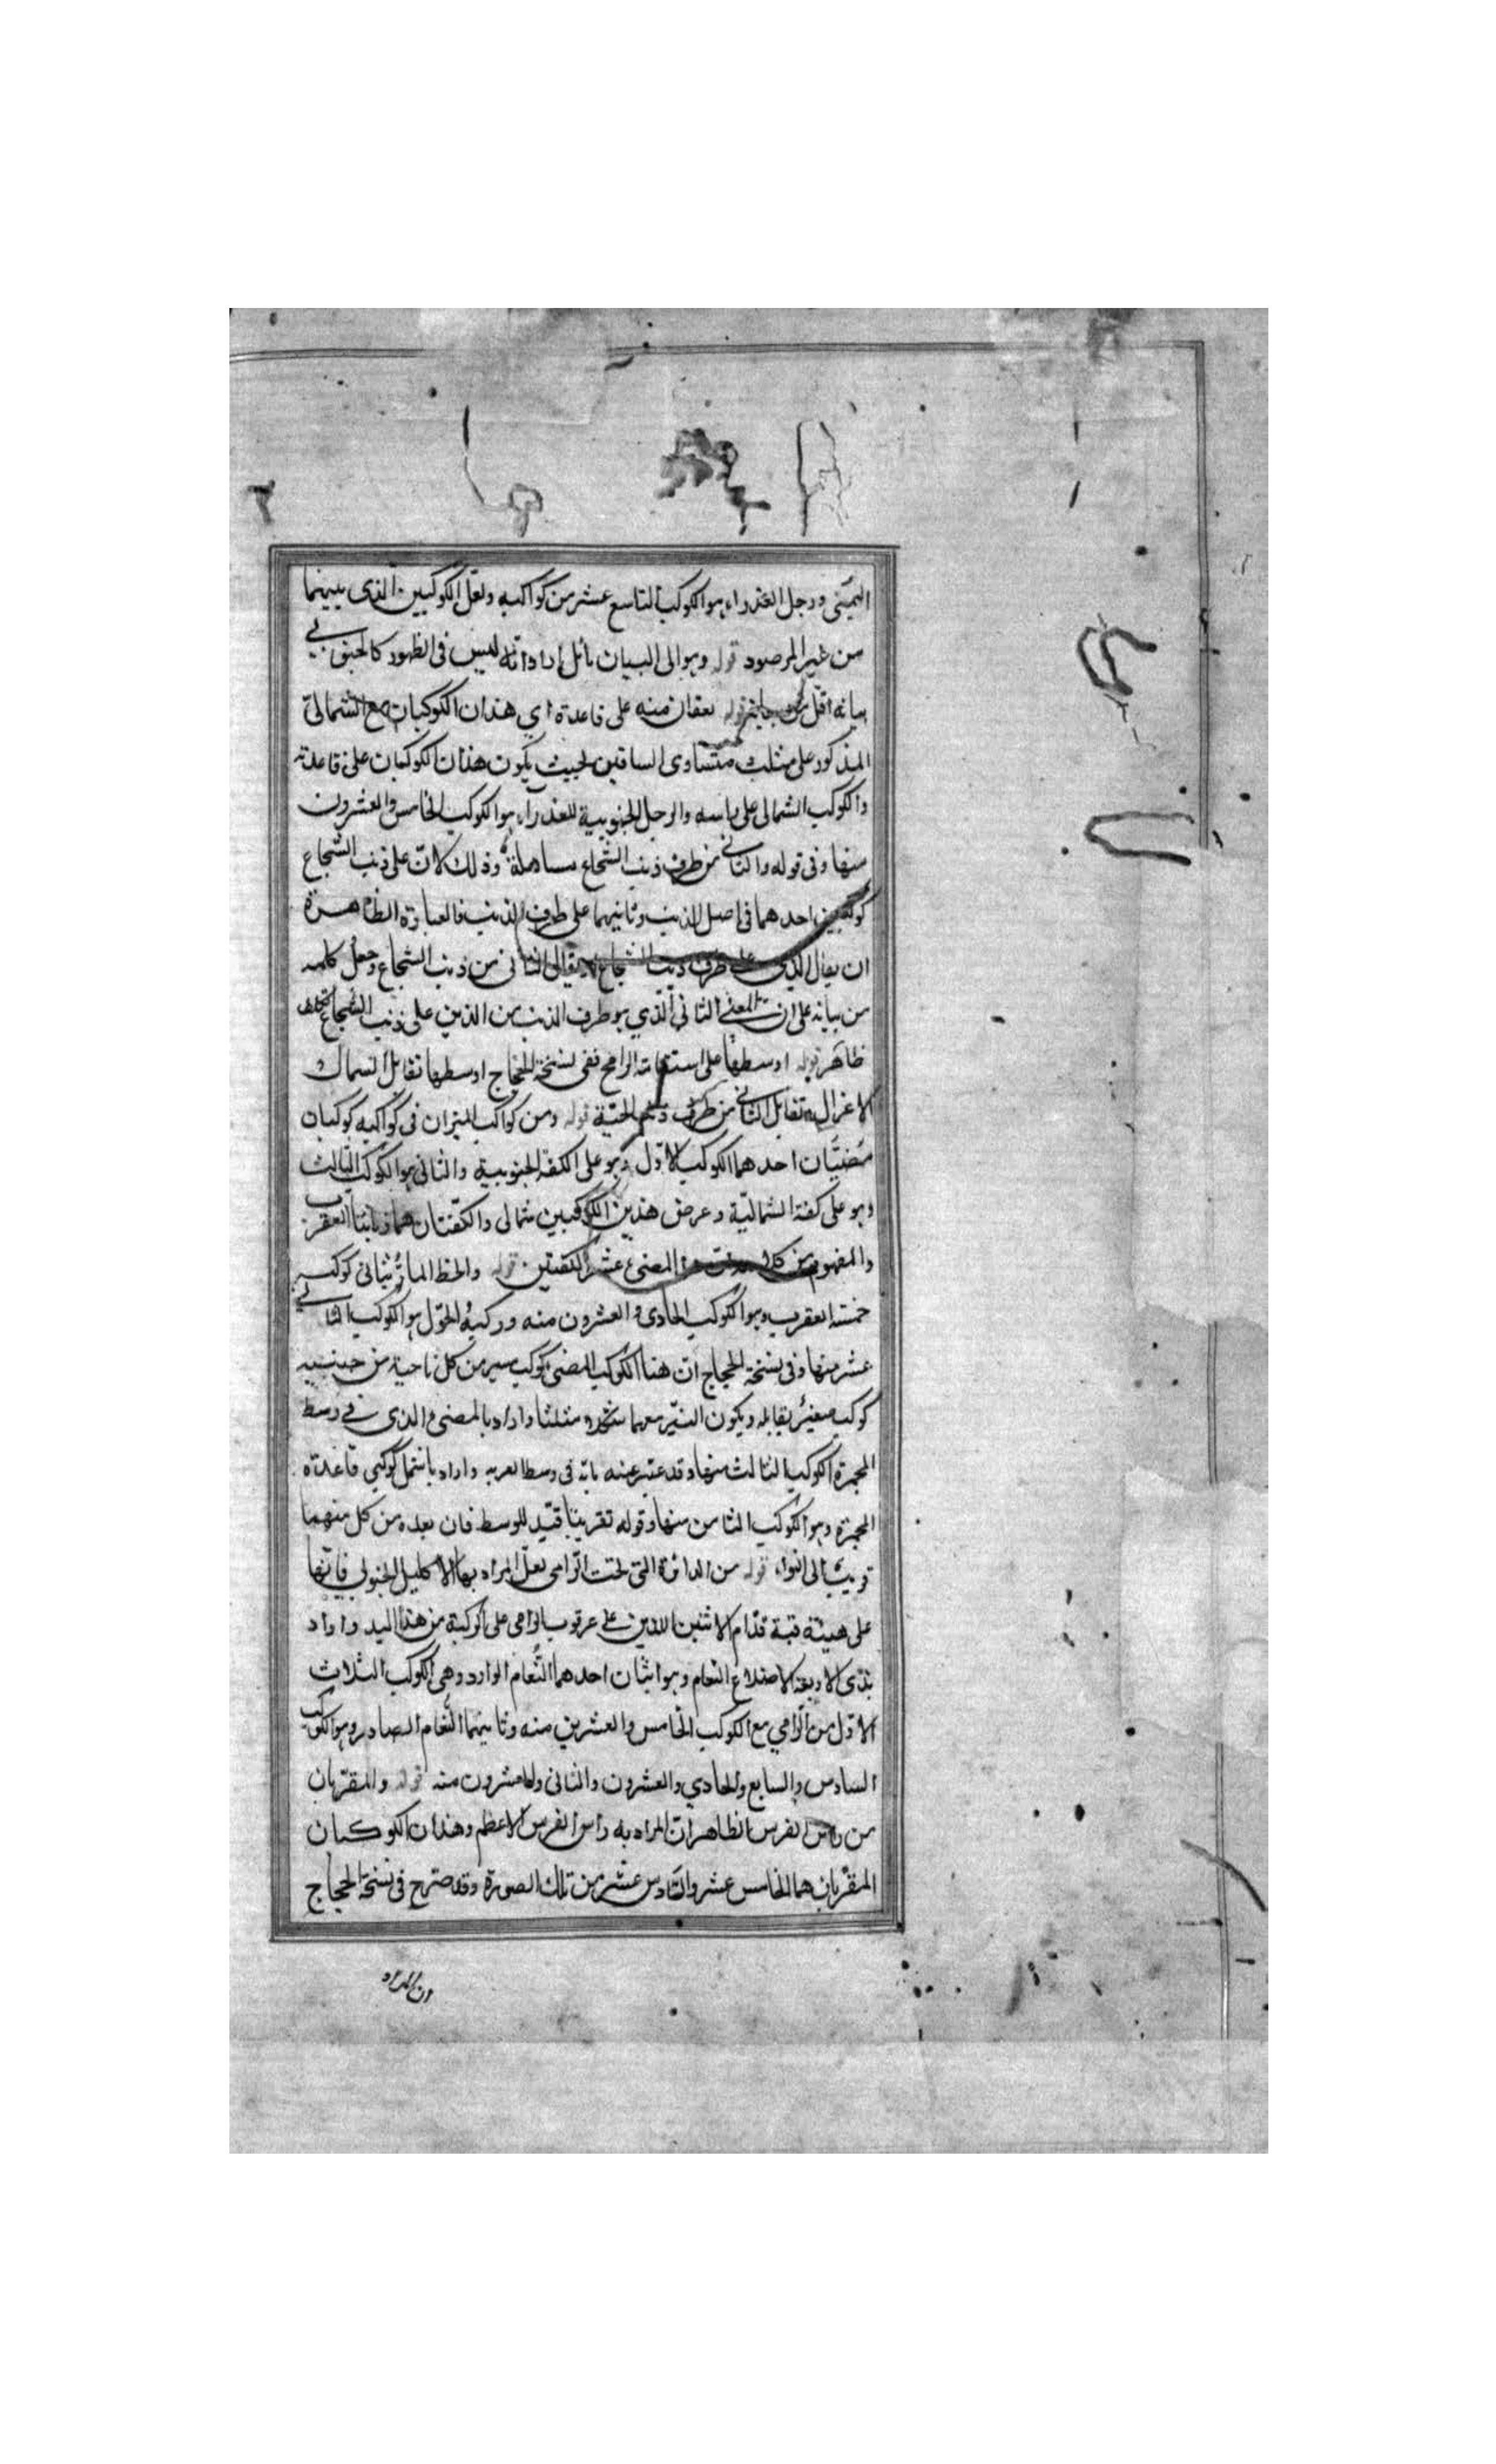 اليمنى ورجل العذراء هو الكوكب التاسع عشر من كواكبه ولعل الكوكبين الذى بينهما
من غير المرصود قوله وهو الى البيان مائل اراد انه ليس فى الظهور كالجنوبي
بيانه اقل من قوله يقعان منه على قاعدة اي هذان الكوكبان مع الشمالى
المذكور على مثلث متساوى الساقين بحيث يكون هذان الكوكبان على قاعدته
والكوكب الشمالى على راسه والرجل الجنوبية للعذراء هو الكوكب الخامس والعشرون
منها وفى قوله والثاني من طرف ذنب الشجاع مساهلة وذلك لان على ذنب الشجاع
كوكبين احدهما فى اصل الذنب وثانيهما على طرف الذنب فالعبارة الظاهرة
ان يقال الذي على طرف ذنب الشجاع لا يقال الثانى من ذنب الشجاع وجعل كلمة
من بيانه على ان المعنى الثانى الذي هو طرف الذنب من الذين على ذنب الشجاع تكلف
ظاهر قوله اوسطها على استقامة الرامح ففى نسخة الحجاج اوسطها تقابل السماك
الاعزال تقابل الثاني من طرف الحية قوله ومن كواكب الميزان فى كواكبه كوكبان
مضيّان احدهما الكوكب الاول وهو على الكفة الجنوبية والثانى هو الكوكب الثالث
وهو على كفة الشمالية وعرض هذين الكوكبين شمالى والكفتان هما زبانتا العقرب
والمفهوم من المضى عشر الكفتين قوله والخط المار بثانى كوكب
خمسة العقرب وهو الكوكب الحادى والعشرون منه وركبة الحوّل هو الكوكب الثاني
عشر منها وفى نسخة الحجاج ان هنا الكوكب المضى كوكب سير من كل ناحية من جنبيه
كوكب صغير يقابله ويكون النيّر معهما مثلثا واراد بالمضى الذى في وسط
المجمرة الكوكب الثالث منها وقد عبّر عنه بانه فى وسط واراد باشمل كوكبي قاعدة
المجمرة وهو الكوكب الثامن منها وقوله تقريبا قيّد للوسط فان بعده من كل منهما
قريب الى انواء قوله من الدائرة التى تحت الرامى لعل المراد بها الاكليل الجنوبي فانها
على هيئة قبة قدام الاثنين اللذين على عرقوب الرامى على الركبة من هذا اليد واراد
بذى الاربعة الاضلاع النعام وهو اثنان احدهما النعام الوارد وهى الكوكب الثلاث
الاول من الرامي مع الكوكب الخامس والعشرين منه وثانيهما النعام الصادر وهو الكوكب
السادس والسابع والحادي والعشرون والثانى والعشرون منه قوله والمتقربان
من راس الفرس الظاهر ان المراد به راس الفرس الاعظم وهذان الكوكبان
المتقربان هما الخامس عشر والسادس عشر من تلك الصورة وقد صرح فى نسخة الحجاج
ان المراد